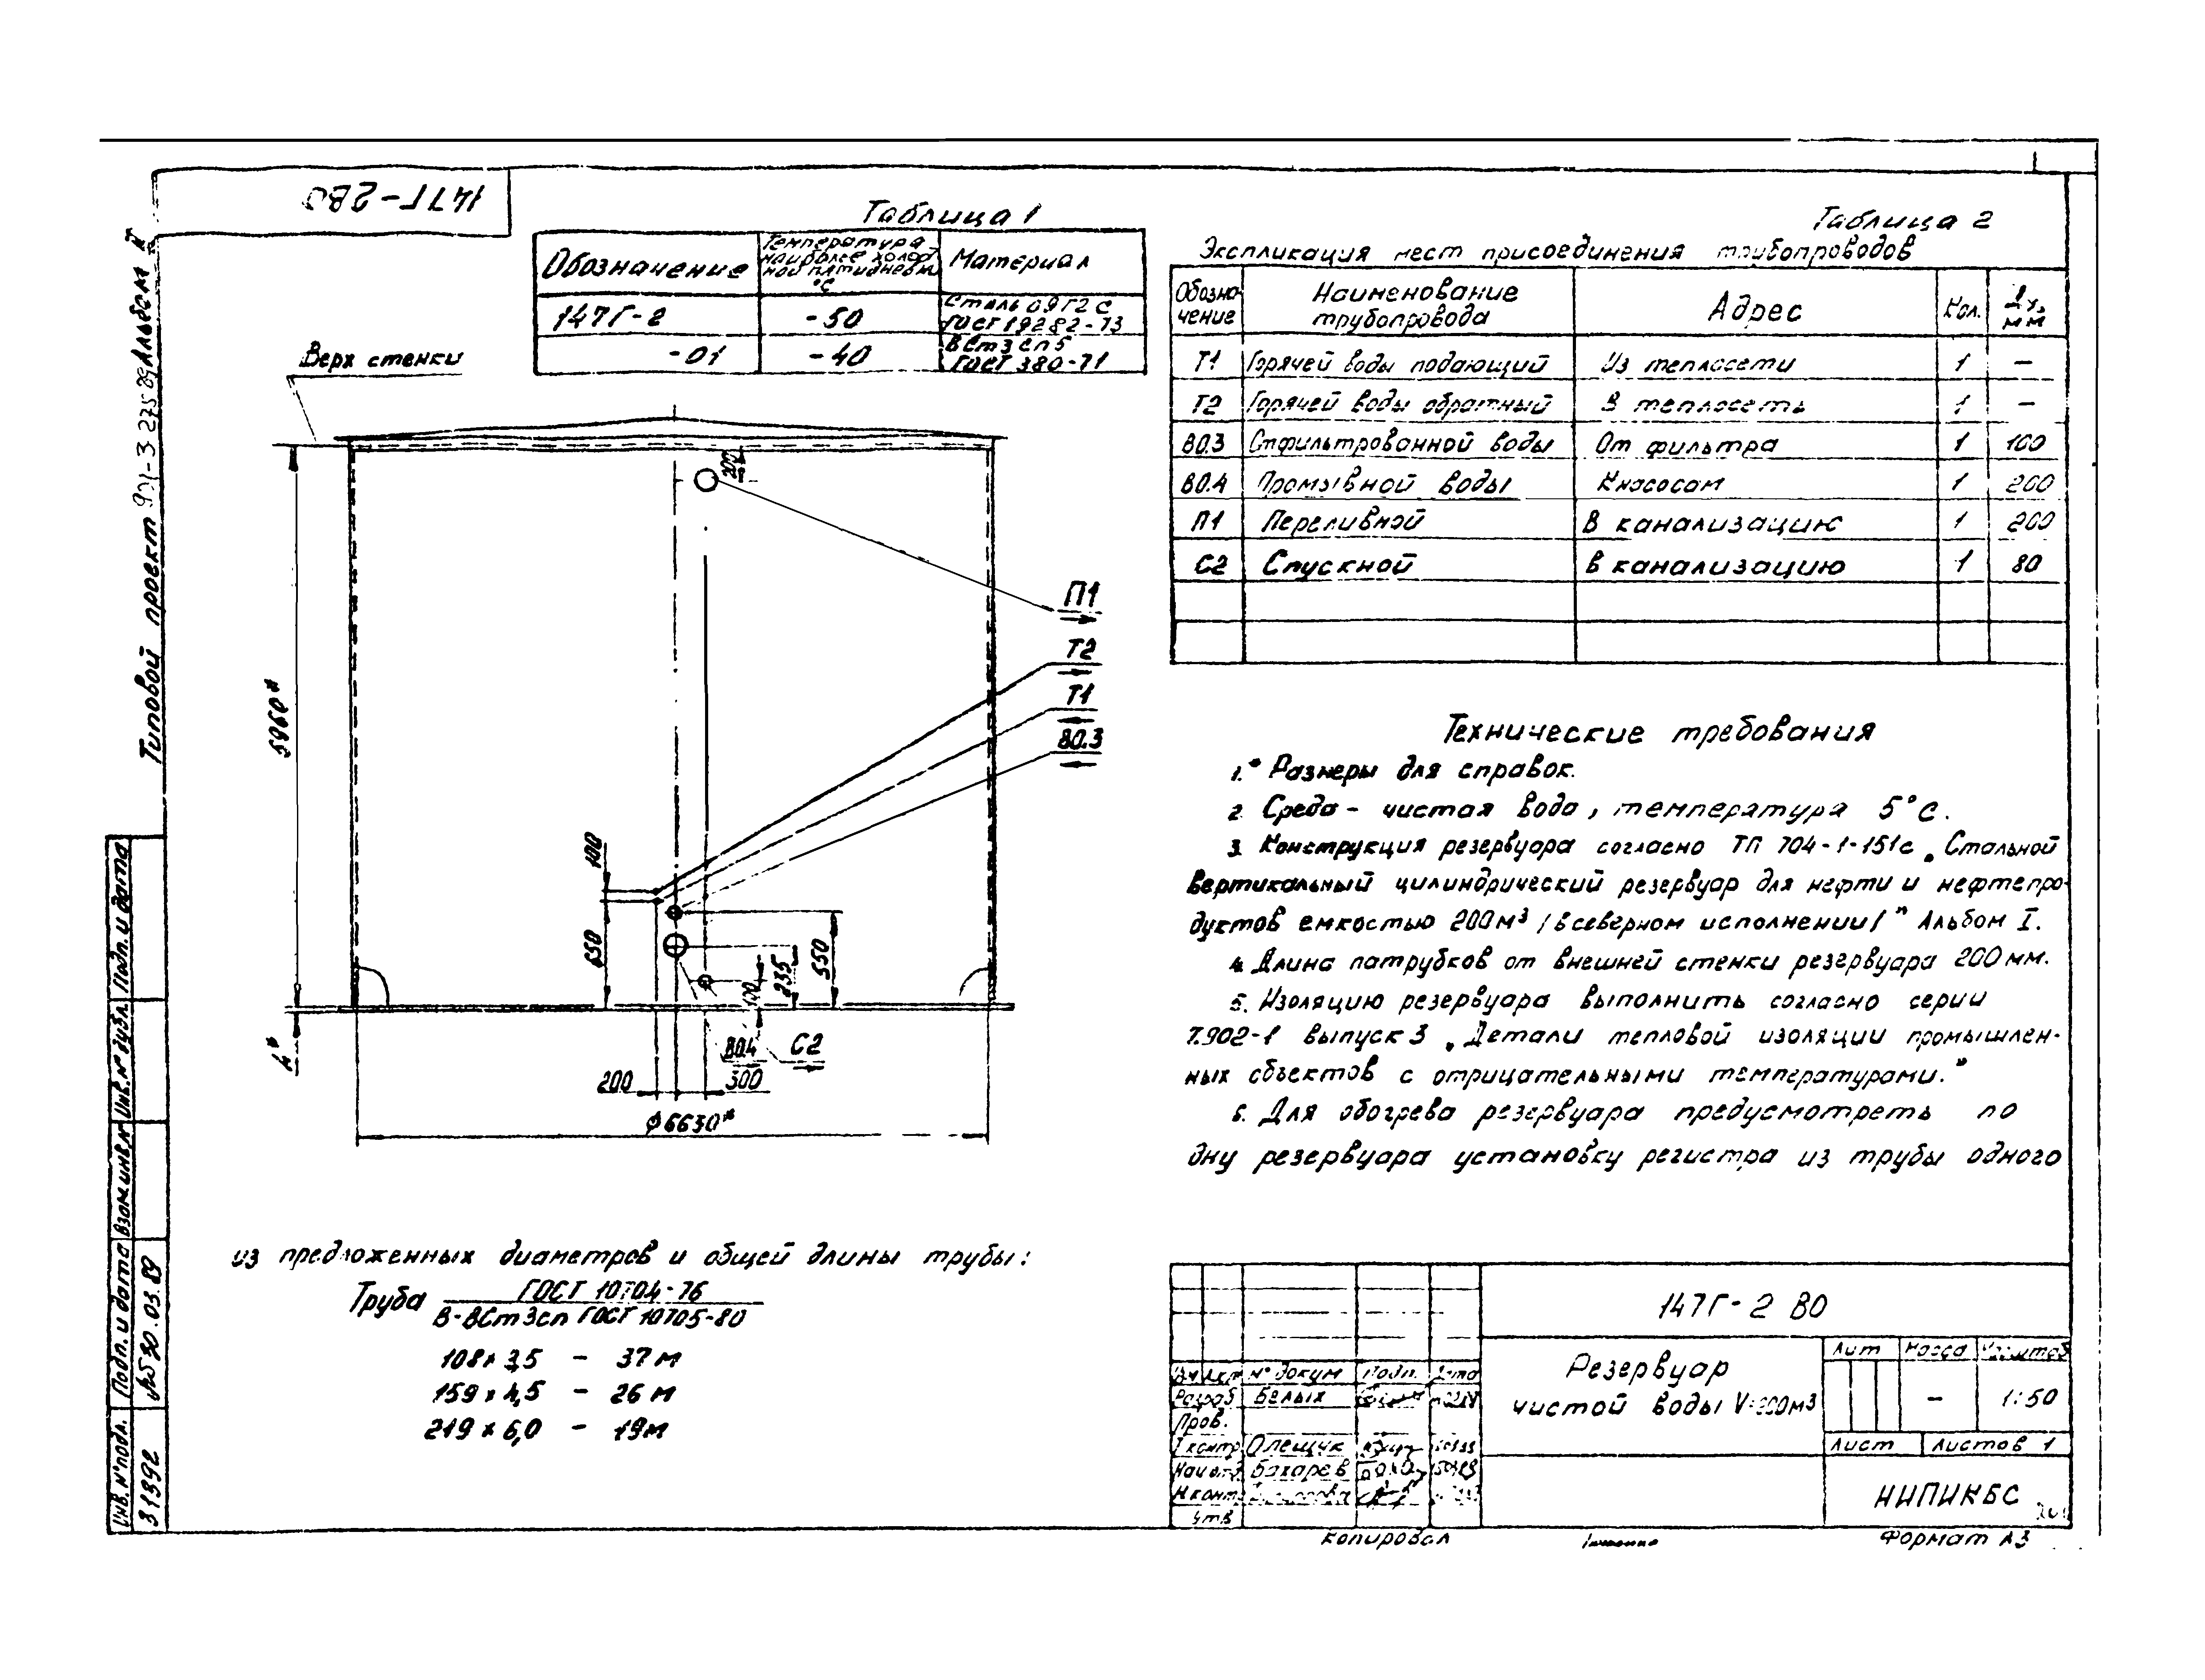 147Г-2ВО
Типовой проект 901-3 275 89 Альбом
Таблица 1
Обозначение
Температура
наиболее холод-
ной пятидневки
°С
Материал
147Г-2
-50
Сталь 09Г2С
ГОСТ 19282-73
-01
-40
ВСт3сп5
ГОСТ 380-71
Таблица 2
Экспликация мест присоединения трубопроводов
Обозна-
чение
Наименование
трубопровода
Адрес
Кол.
Ду,
мм
Т1 Горячей воды подающий Из теплосети 1 —
Т2 Горячей воды обратный В теплосеть 1 —
В0.3 Отфильтрованной воды От фильтра 1 100
В0.4 Промывной воды К насосам 1 200
П1 Переливной В канализацию 1 200
С2 Спускной В канализацию 1 80
Верх стенки
200
П1
Т2
Т1
В0.3
5960*
100
650
550
235
100
В0.4
С2
4*
200
300
ϕ6630*
Технические требования
1.* Размеры для справок.
2. Среда - чистая вода, температура 5°С.
3. Конструкция резервуара согласно ТП 704-1-151с „Стальной
вертикальный цилиндрический резервуар для нефти и нефтепро-
дуктов емкостью 200м³ /в северном исполнении/" Альбом I.
4. Длина патрубков от внешней стенки резервуара 200 мм.
5. Изоляцию резервуара выполнить согласно серии
7.902-1 выпуск 3 „Детали тепловой изоляции промышлен-
ных объектов с отрицательными температурами."
6. Для обогрева резервуара предусмотреть по
дну резервуара установку регистра из трубы одного
из предложенных диаметров и общей длины трубы:
Труба ГОСТ 10704-76
В-ВСт3сп ГОСТ 10705-80
108х3,5 - 37м
159х4,5 - 26м
219х6,0 - 19м
147Г-2 ВО
Резервуар
чистой воды V=200м3
Лит Масса Масштаб
— 1:50
Лист Листов 1
НИПИКБС
Изм Лист № докум Подп. Дата
Разраб Белых
Пров.
Т контр Олещук
Нач отд Бахарев
Н.контр
Утв
Копировал
Формат А3
Инв. № подл. Подп. и дата Взам инв.№ Инв.№ дубл. Подп. и дата
31392
30.03.89